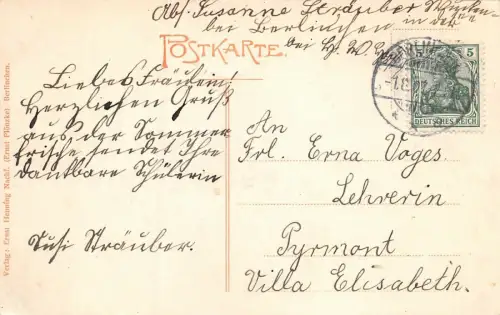 Abs. Susanne Sträuber
bei Berlinchen in der
bei H. W.
POSTKARTE.
5
DEUTSCHES REICH
Liebes Fräulein!
Herzlichen Gruß
aus der Sommer
frische sendet Ihre
dankbare Schülerin
Susi Sträuber.
An
Frl. Erna Voges
Lehrerin
Pyrmont
Villa Elisabeth.
Verlag: Erwu Hennig Nachf. (Ernst Plöntke) Berlinchen.